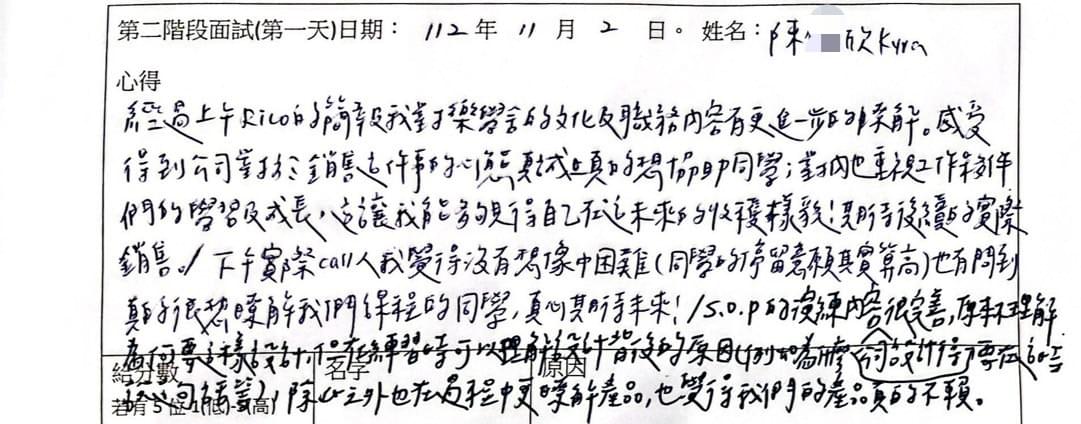 第二階段面試(第一天)日期： 112 年 11 月 2 日。 姓名：陳 欣 Kyra
心得
經過上午Rico的簡報我對樂學舍的文化及職務內容有更進一步的瞭解。感受
得到公司對於銷售這件事的心態真誠且真的想協助同學；對內也重視工作夥伴
們的學習及成長，這讓我能夠覺得自己在這未來的收穫樣貌！期待後續的實際
銷售。/ 下午實際call人我覺得沒有想像中困難(同學的停留意願其實算高)也有問到
真的很想瞭解我們課程的同學，真心期待未來！/S.O.P的演練內容很完善，原來不理解
為何要這樣設計，但在練習時可以理解設計背後的原因(例如為什麼 問設計得 要在這些
給分數 名字 原因
若有 5 位 1(低)-5(高)
問 )，除此之外也在過程中更瞭解產品，也覺得我們的產品真的不賴。